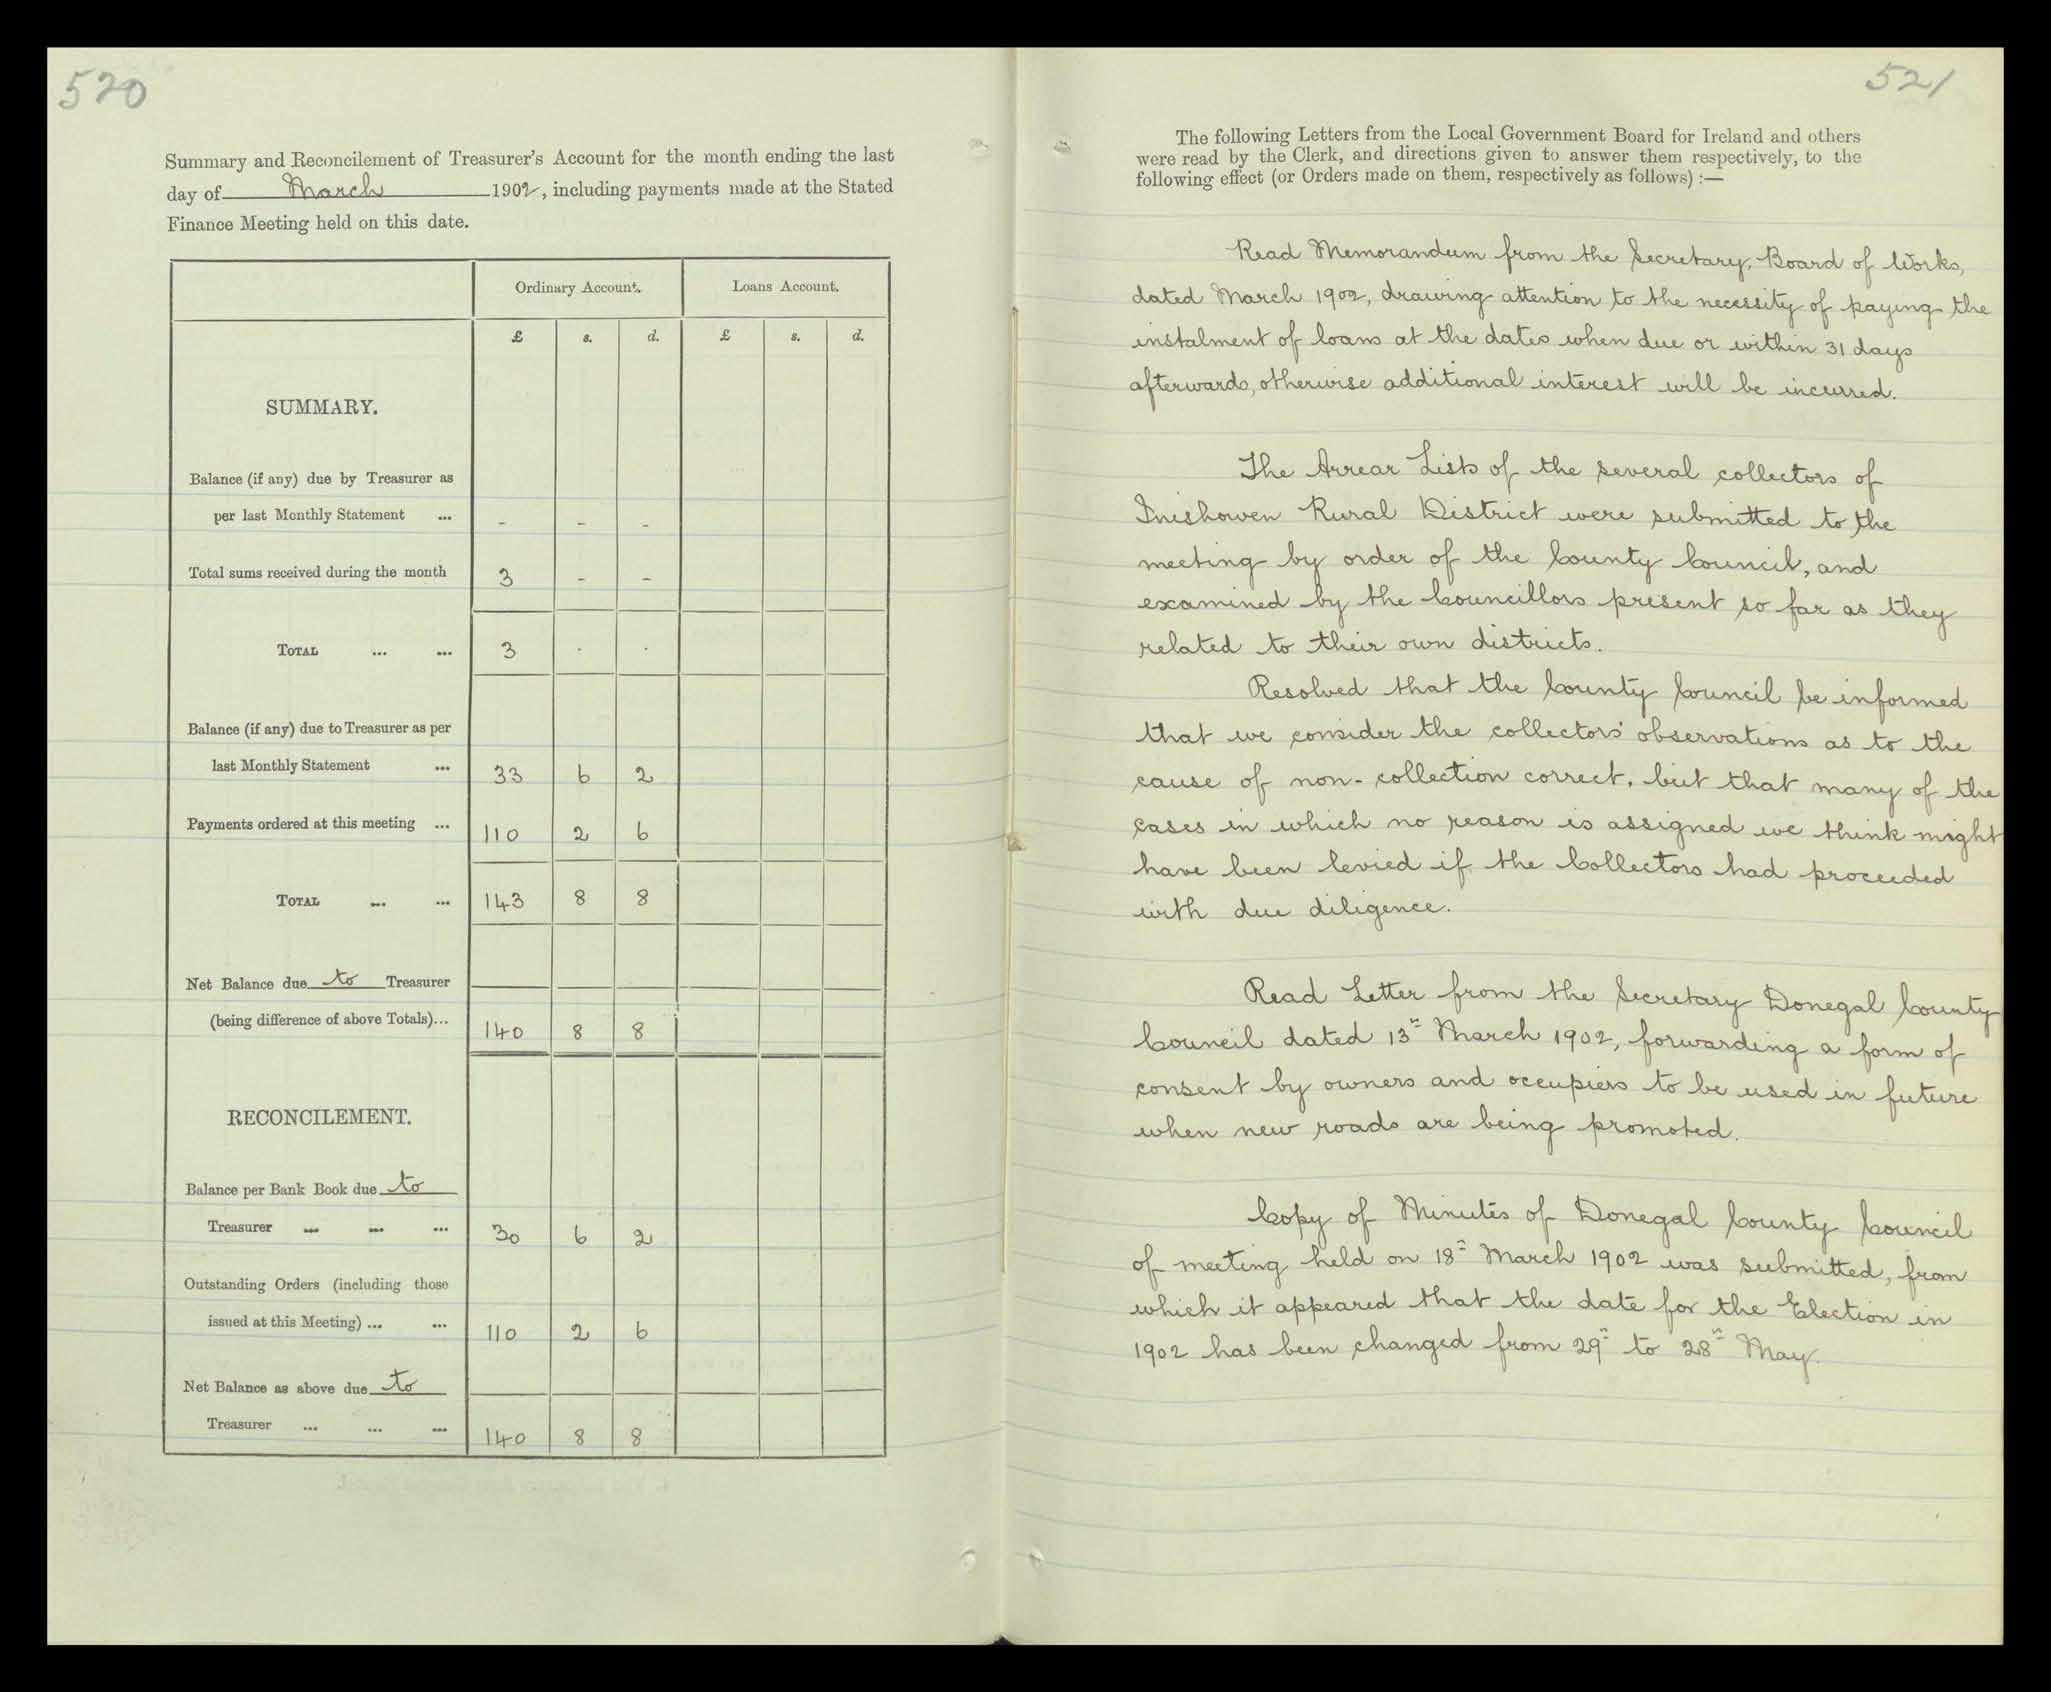 520
Summary and Reconcilement of Treasurer's Account for the month ending the last
day of March 1902, including payments made at the Stated
Finance Meeting held on this date.
Ordinary Account. Loans Account.
£ s. d. £ s. d.
SUMMARY.
Balance (if any) due by Treasurer as
per last Monthly Statement ... - - -
Total sums received during the month 3 - -
TOTAL ... ... 3 . .
Balance (if any) due to Treasurer as per
last Monthly Statement ... 33 6 2
Payments ordered at this meeting ... 110 2 6
TOTAL ... ... 143 8 8
Net Balance due to Treasurer
(being difference of above Totals)... 140 8 8
RECONCILEMENT.
Balance per Bank Book due to
Treasurer ... ... ... 30 6 2
Outstanding Orders (including those
issued at this Meeting) ... ... 110 2 6
Net Balance as above due to
Treasurer ... ... ... 140 8 8
521
The following Letters from the Local Government Board for Ireland and others
were read by the Clerk, and directions given to answer them respectively, to the
following effect (or Orders made on them, respectively as follows) :—
Read Memorandum from the Secretary, Board of Works,
dated March 1902, drawing attention to the necessity of paying the
instalment of loans at the dates when due or within 31 days
afterwards, otherwise additional interest will be incurred.
The Arrear Lists of the several collectors of
Inishowen Rural District were submitted to the
meeting by order of the County Council, and
examined by the Councillors present so far as they
related to their own districts.
Resolved that the County Council be informed
that we consider the collectors' observations as to the
cause of non-collection correct, but that many of the
cases in which no reason is assigned we think might
have been levied if the Collectors had proceeded
with due diligence.
Read Letter from the Secretary Donegal County
Council dated 13th March 1902, forwarding a form of
consent by owners and occupiers to be used in future
when new roads are being promoted.
Copy of Minutes of Donegal County Council
of meeting held on 18th March 1902 was submitted, from
which it appeared that the date for the Election in
1902 has been changed from 29th to 28th May.